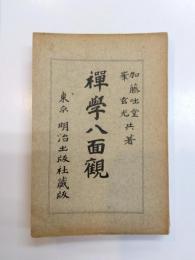 加藤咄堂
峯玄光 共著
禪學八面觀
東京 明治出版社藏版